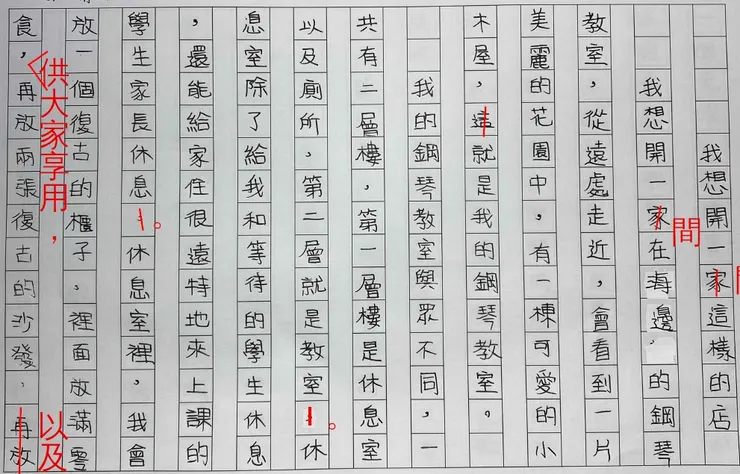 我想開一家這樣的店
我想開一家在海邊的鋼琴
間
教室,從遠處走近,會看到一片
美麗的花園中,有一棟可愛的小
木屋,這就是我的鋼琴教室。
我的鋼琴教室與眾不同,一
共有二層樓,第一層樓是休息室
以及廁所,第二層就是教室。休
息室除了給我和等待的學生休息
,還能給家住很遠特地來上課的
學生家長休息。休息室裡,我會
放一個復古的櫃子,裡面放滿零
供大家享用,
以及
食,再放兩張復古的沙發,再放